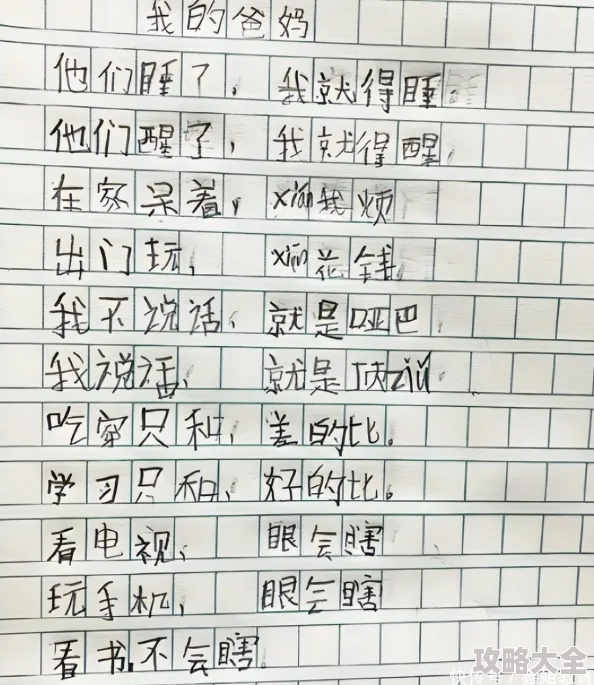 我的爸妈
他们睡了，我就得睡。
他们醒了，我就得醒，
在家呆着，xián我烦
出门玩，xián花钱，
我不说话，就是哑巴
我说话，就是顶zuǐ
吃穿只和，差的比。
学习只和，好的比。
看电视，眼会瞎
玩手机，眼会瞎
看书不会瞎
攻略大全
快传号/